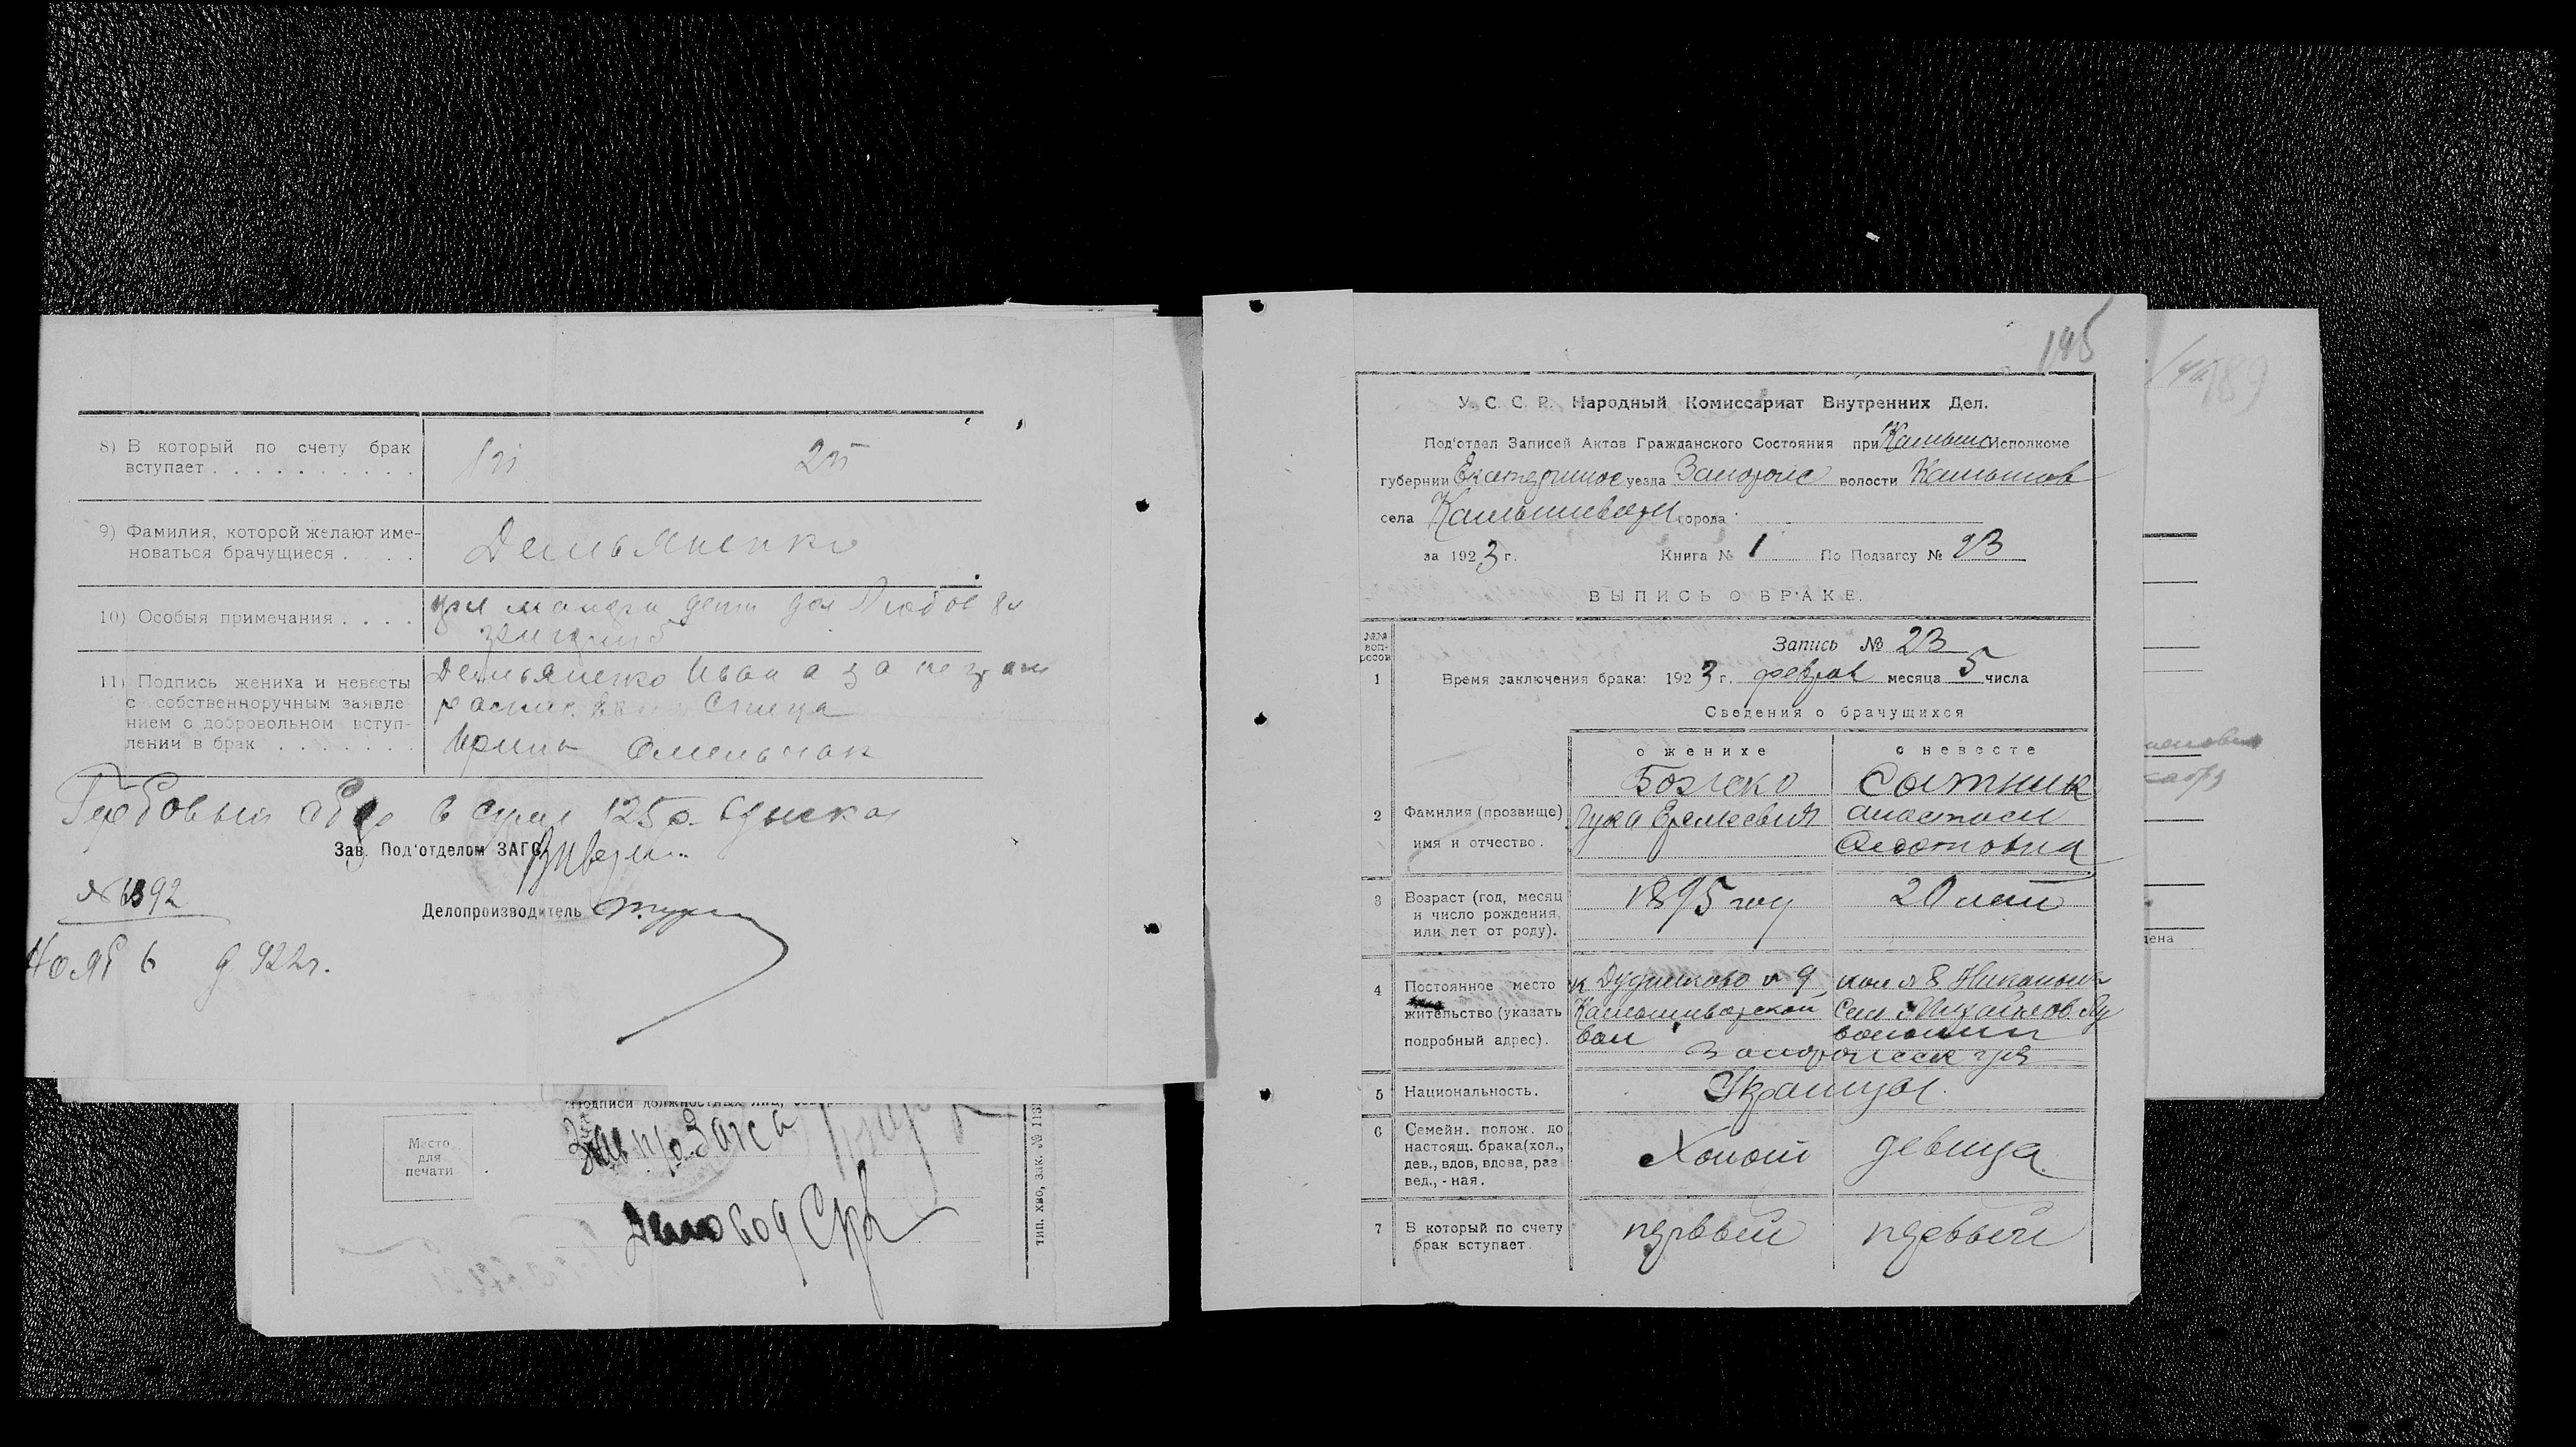 8) В который по счету брак
вступает . . . . . . . . . .
1й 2й
9) Фамилия, которой желают име-
новаться брачущиеся . . . .
Демьяненко
10) Особыя примечания . . . .
11) Подпись жениха и невесты
с собственноручным заявле
нием о добровольном вступ-
лении в брак . . . . . . .
Демьяненко Иван а за неграм
Спица
Ирина Омельчак
Гербовый сбор в сумм 125 р. взыскан
Зав. Под'отделом ЗАГС
№ 1392
Делопроизводитель
Нояб 6 д 922г.
Подписи должностных лиц,
Место
для
печати
Зав п/о Загса
Деловод
тип. хво, зак. № 113
195
У. С. С. Р. Народный Комиссариат Внутренних Дел.
Под'отдел Записей Актов Гражданского Состояния при Камыш Исполкоме
губернии Екатеринос уезда Запорожс волости Камышев
села Камышеваги города
за 1923 г. Книга № 1 По Подзагсу № 23
ВЫПИСЬ О БРАКЕ.
№№ воп-росов
Запись № 23
1 Время заключения брака: 1923 г. феврал месяца 5 числа
Сведения о брачущихся
о женихе о невесте
Божко Сотник
2 Фамилия (прозвище)
имя и отчество.
Лука Еремеевич Анастаси
Федотовна
3 Возраст (год, месяц
и число рождения,
или лет от роду).
1895 году 20 лет
4 Постоянное место
жительство (указать
подробный адрес).
к Дудниково № 9
Камышеваской
вол
волости
Запорожск губ
5 Национальность.
Украинцы
6 Семейн. полож. до
настоящ. брака (хол.,
дев., вдов, вдова, раз
вед., - ная.
Холост девица
7 В который по счету
брак вступает.
первый первый
189
дена